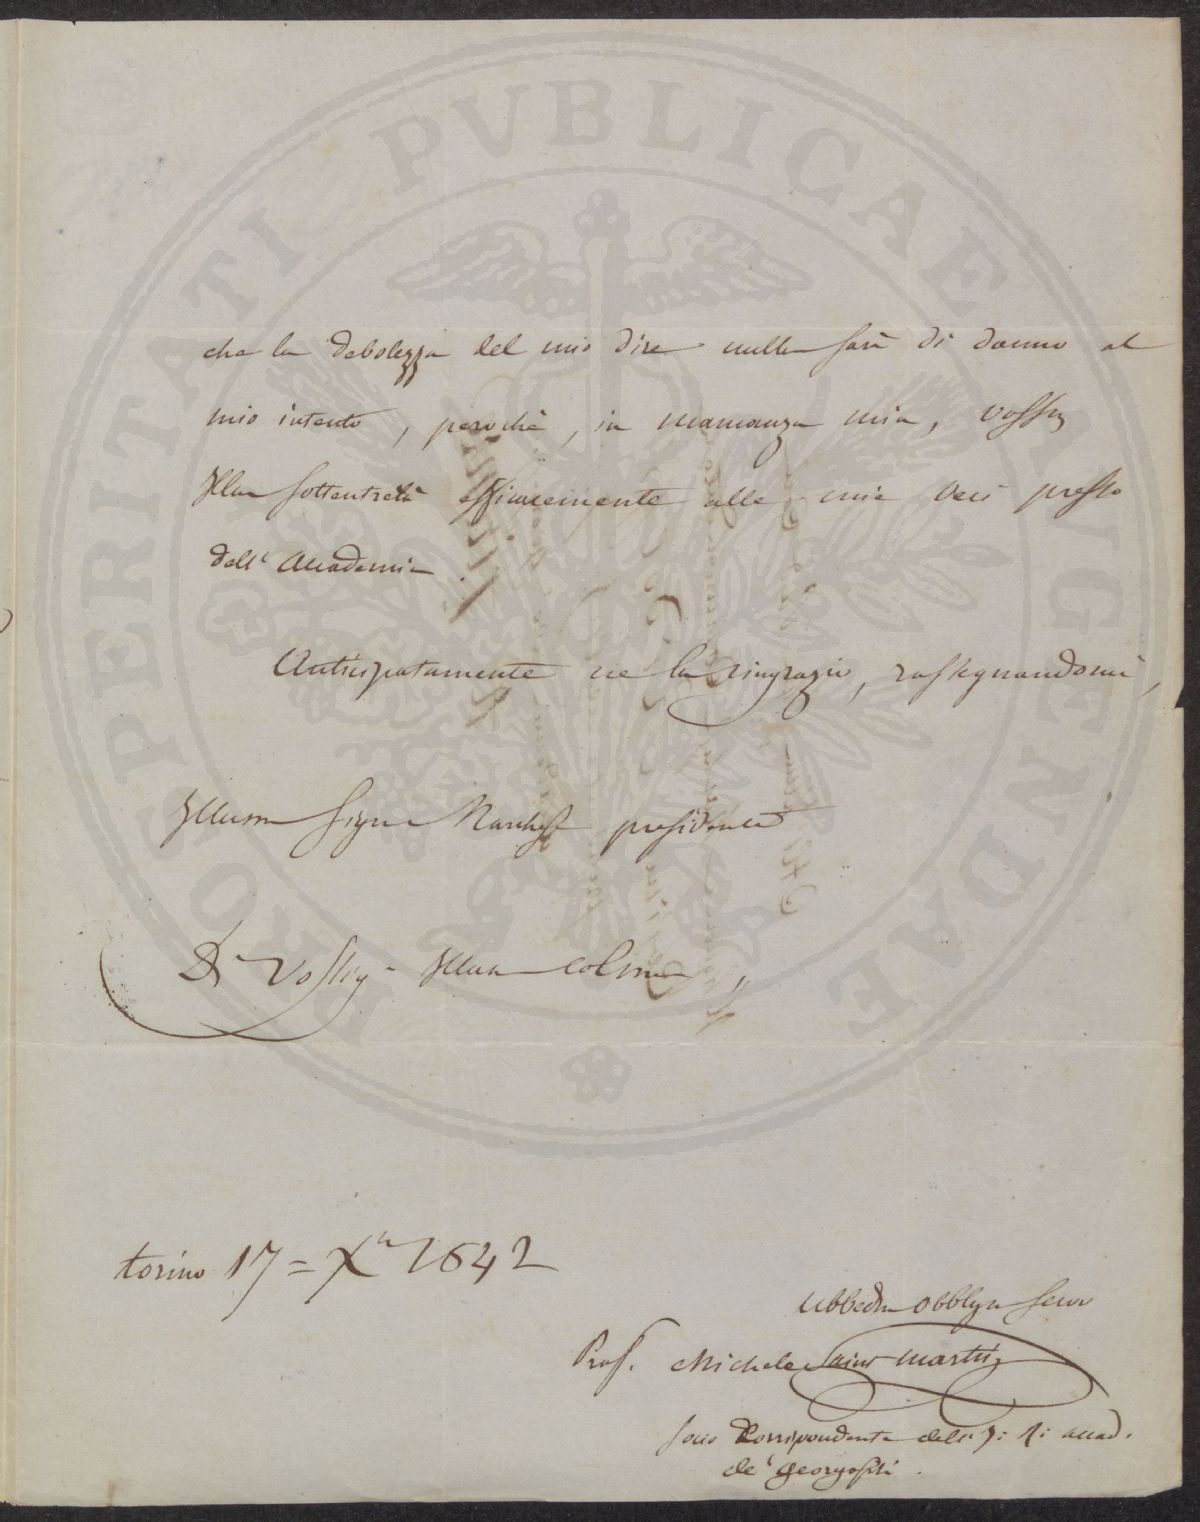 PROSPERITATI PVBLICAE AVGENDAE
che la debolezza del mio dire nulla sarà di danno al
mio intento, perochè, in mancanza mia, Vossia
Illma sottentrerà efficacemente alle mie veci presso
dell'Accademia
Anticipatamente ne la ringrazio, rassegnandomi,
Illumo Signe Marchese presidente
Di Vossia Illma colma
torino 17 = Xre 1842
Ubbedmo Obblgmo servo
Prof. Michele Saint Martin
socio Corrispondente dell' I: R: accad.
de' georgofili.